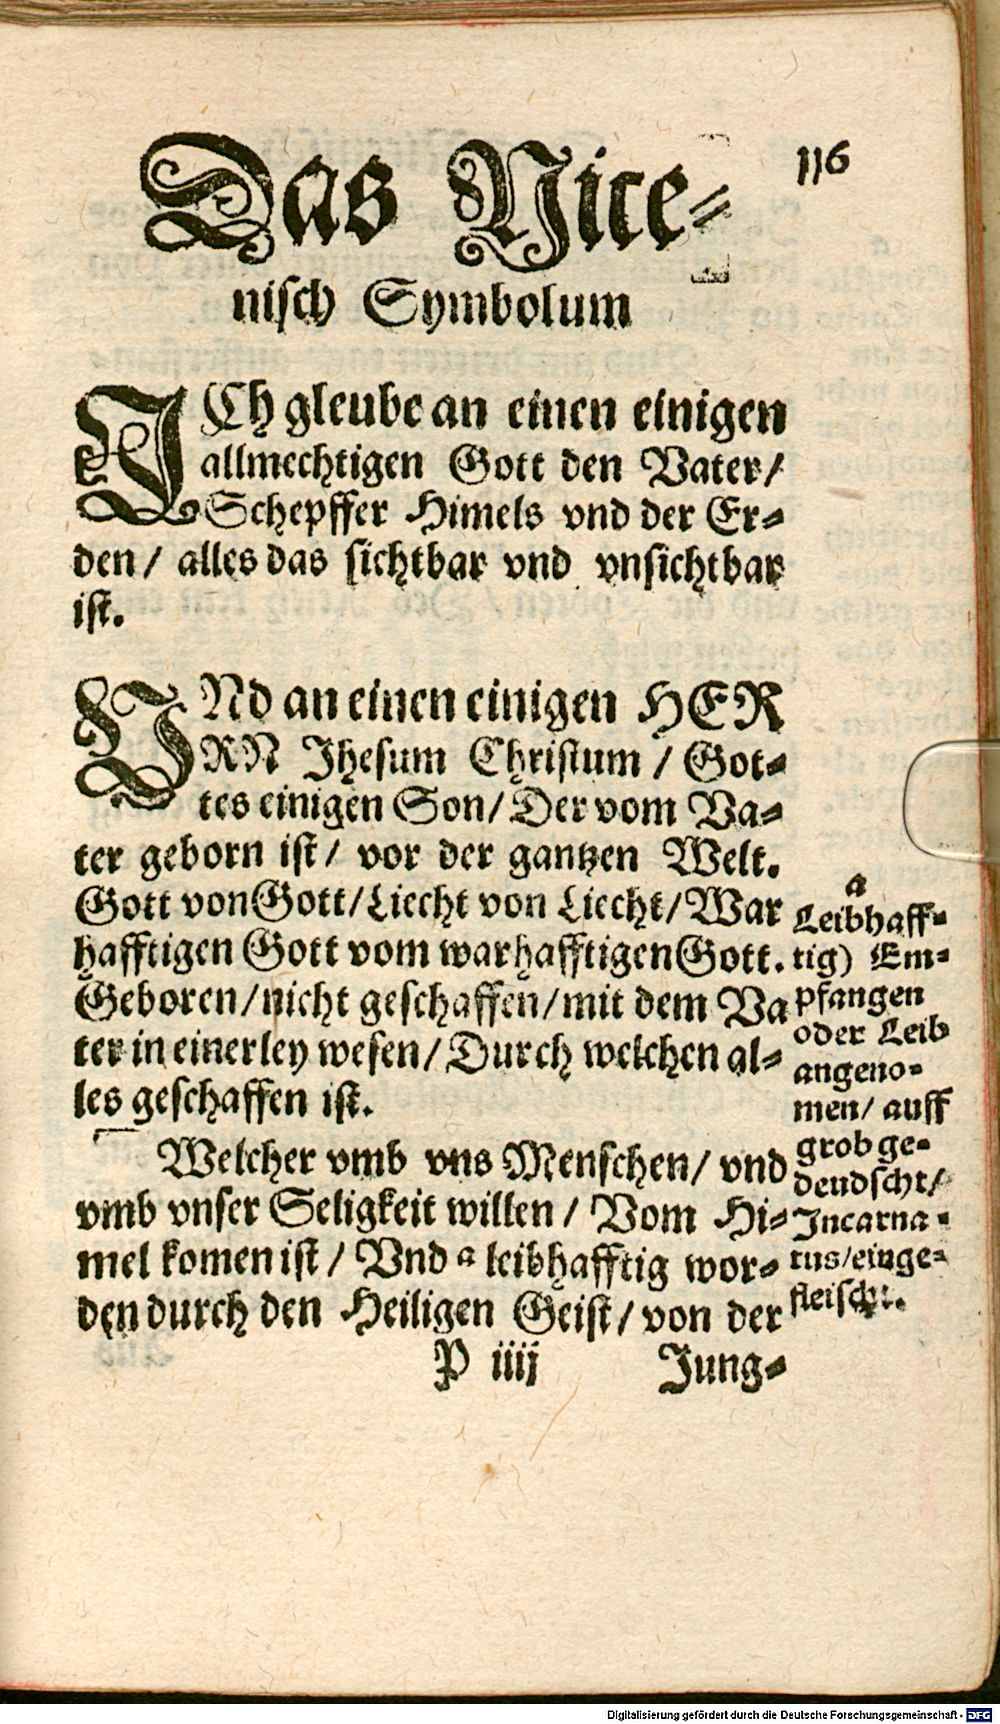 116
Das Nice-
nisch Symbolum
ICh gleube an einen einigen
allmechtigen Gott den Vater/
Schepffer Himels vnd der Er-
den/ alles das sichtbar vnd vnsichtbar
ist.
VNd an einen einigen HER
RN Jhesum Christum/ Got-
tes einigen Son/ Der vom Va-
ter geborn ist/ vor der gantzen Welt.
Gott von Gott/ Liecht von Liecht/ War
hafftigen Gott vom warhafftigen Gott.
Geboren/ nicht geschaffen/ mit dem Va
ter in einerley wesen/ Durch welchen al-
les geschaffen ist.
Welcher vmb vns Menschen/ vnd
vmb vnser Seligkeit willen/ Vom Hi-
mel komen ist/ Vnd a leibhafftig wor-
den durch den Heiligen Geist/ von der
a
Leibhaff-
tig) Em-
pfangen
oder Leib
angeno-
men/ auff
grob ge-
deudscht/
Incarna-
tus/ einge-
fleischt.
P iiij Jung-
Digitalisierung gefördert durch die Deutsche Forschungsgemeinschaft - DFG